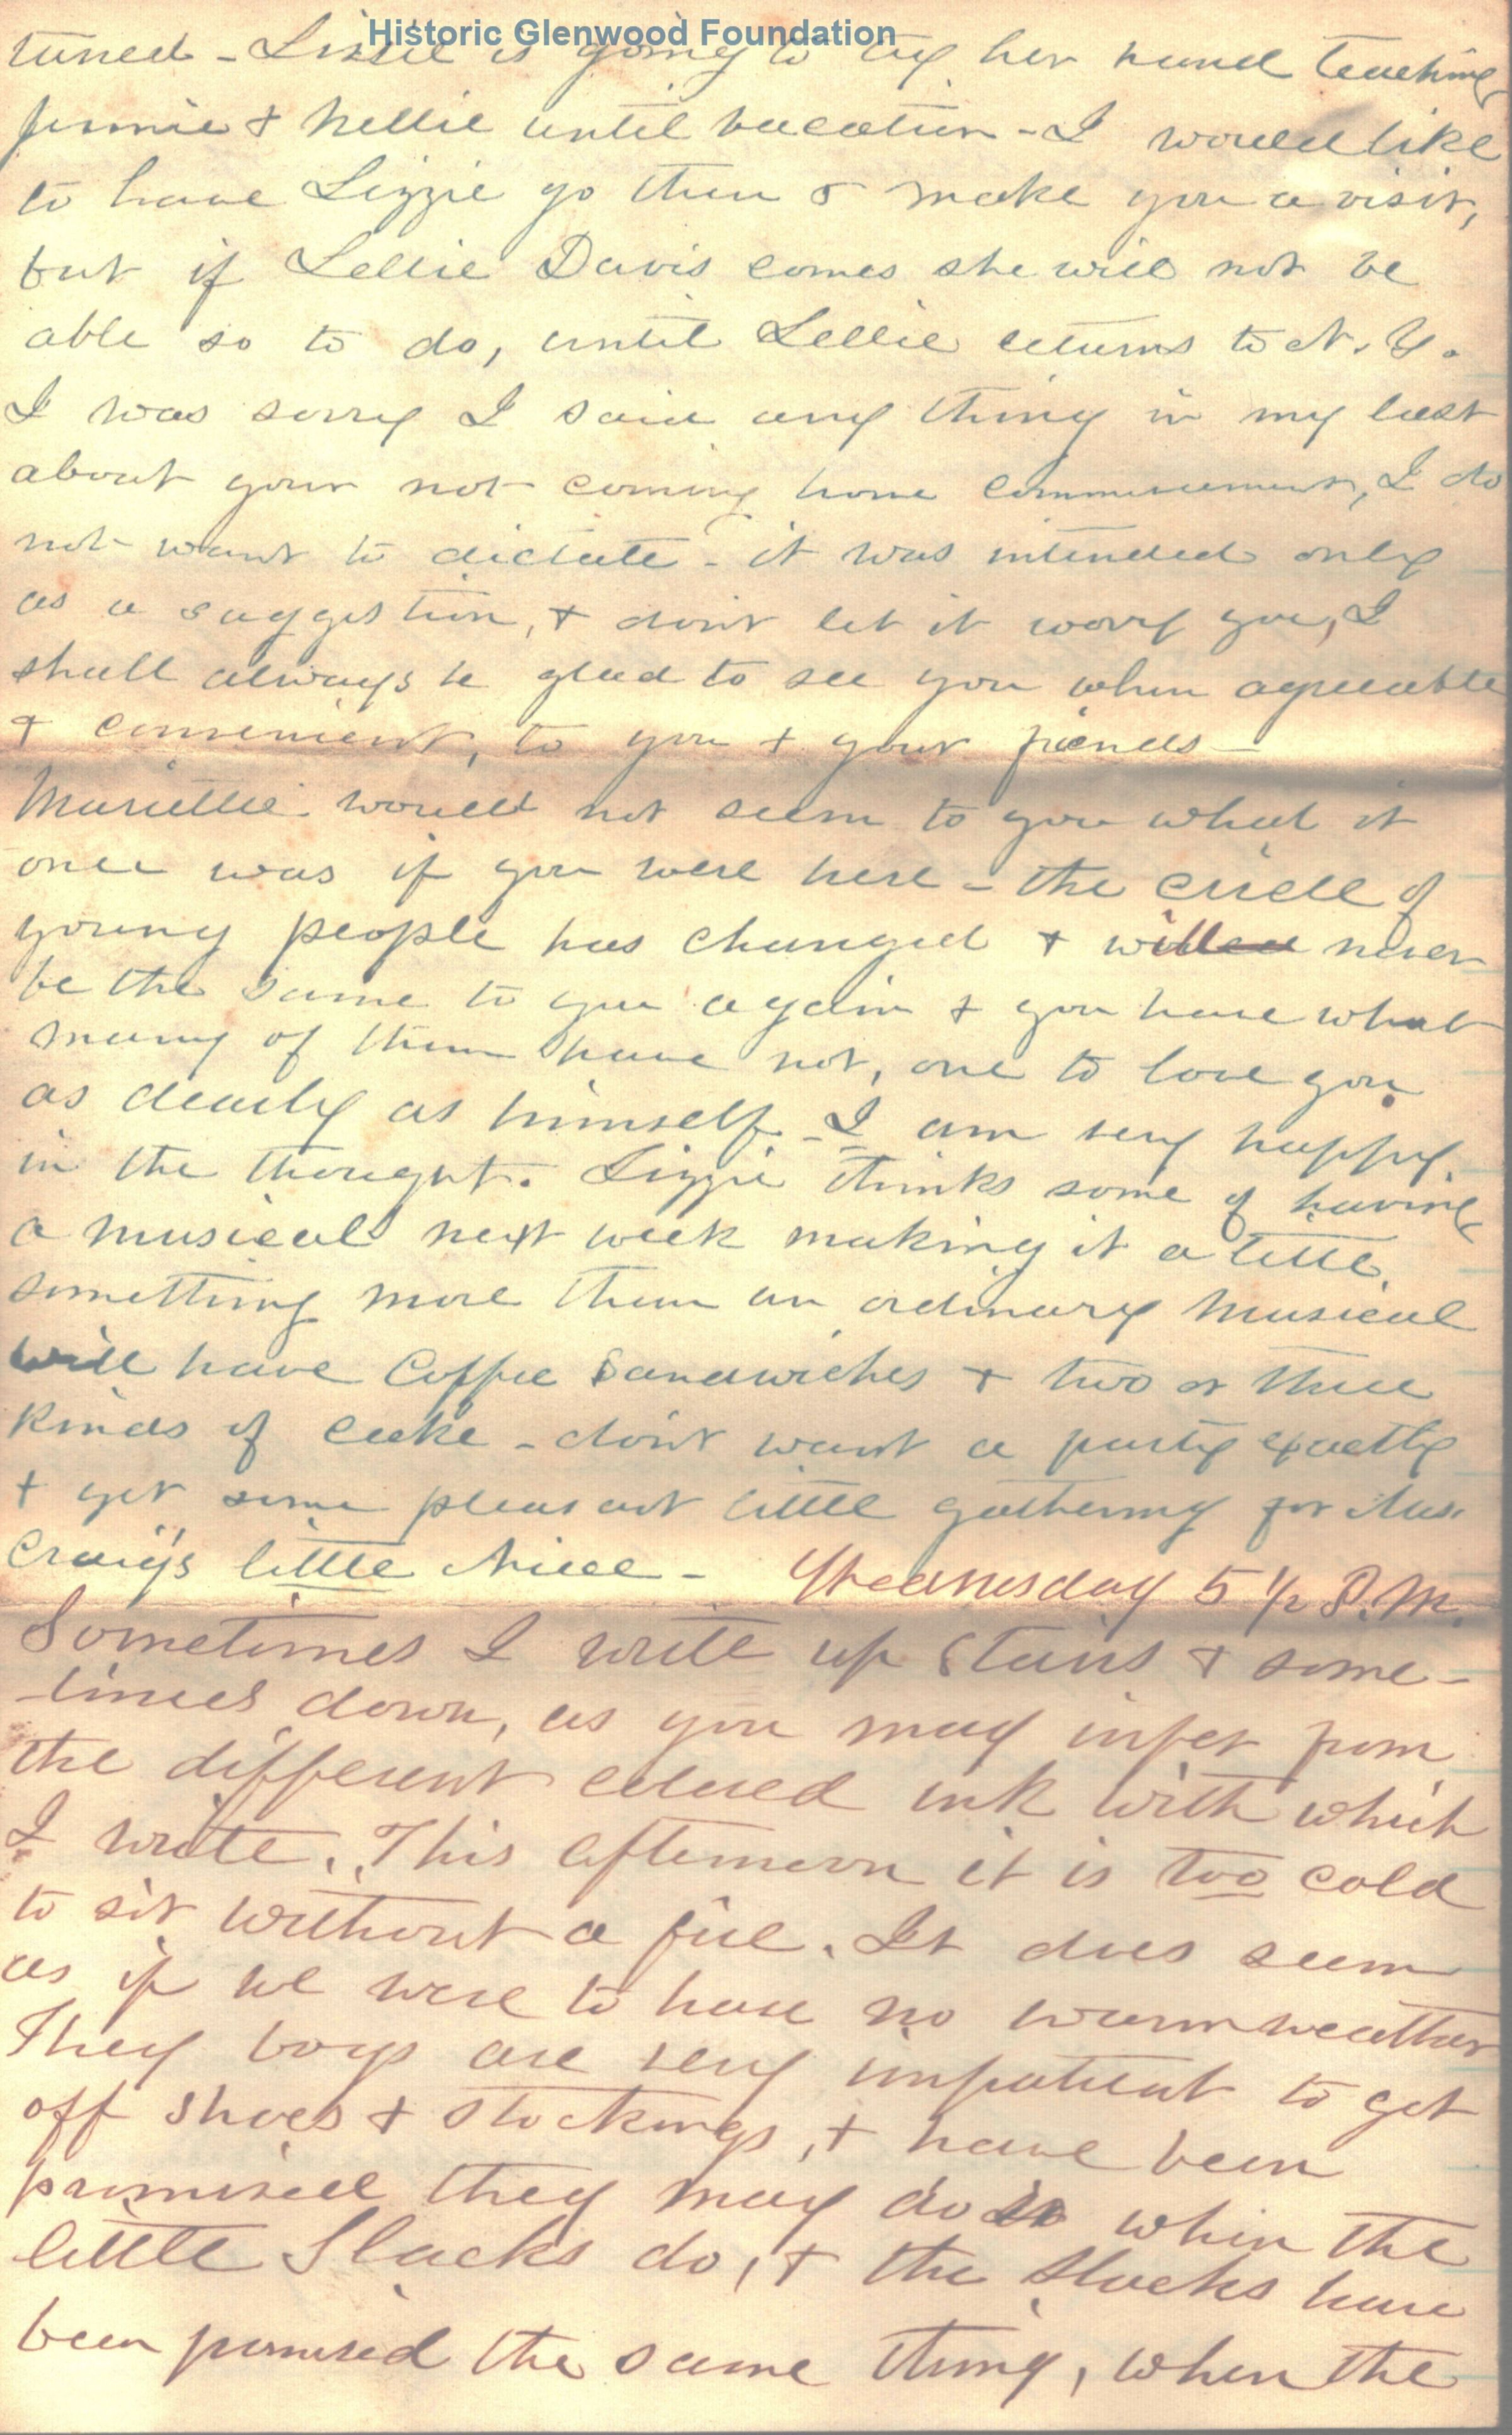 Historic Glenwood Foundation
tuned - Lizzie is going to try her hand teaching
Jennie & Nellie until vacation - I would like
to have Lizzie go then & make you a visit,
but if Lellie Davis comes she will not be
able so to do, until Lellie returns to N. Y.
I was sorry I said any thing in my last
about your not coming home commencement, I do
not want to dictate - it was intended only
as a suggestion, & don't let it worry you, I
shall always be glad to see you when agreeable
& convenient, to you & your friends -
Marietta would not seem to you what it
once was if you were here - the circle of
young people has changed & will never
be the same to you again & you have what
many of them have not, one to love you
as dearly as himself - I am very happy
in the thought. Lizzie thinks some of having
a musical next week making it a little
something more than an ordinary musical
will have Coffee Sandwiches & two or three
kinds of cake - don't want a party exactly
& yet some pleasant little gathering for Mrs.
Craig's little Niece - Wednesday 5 1/2 P.M.
Sometimes I write up stairs & some-
-times down, as you may infer from
the different colored ink with which
I write. This afternoon it is too cold
to sit without a fire. It does seem
as if we were to have no warm weather
They boys are very impatient to get
off shoes & stockings, & have been
promised they may do so when the
little Slacks do, & the Slacks have
been promised the same thing, when the